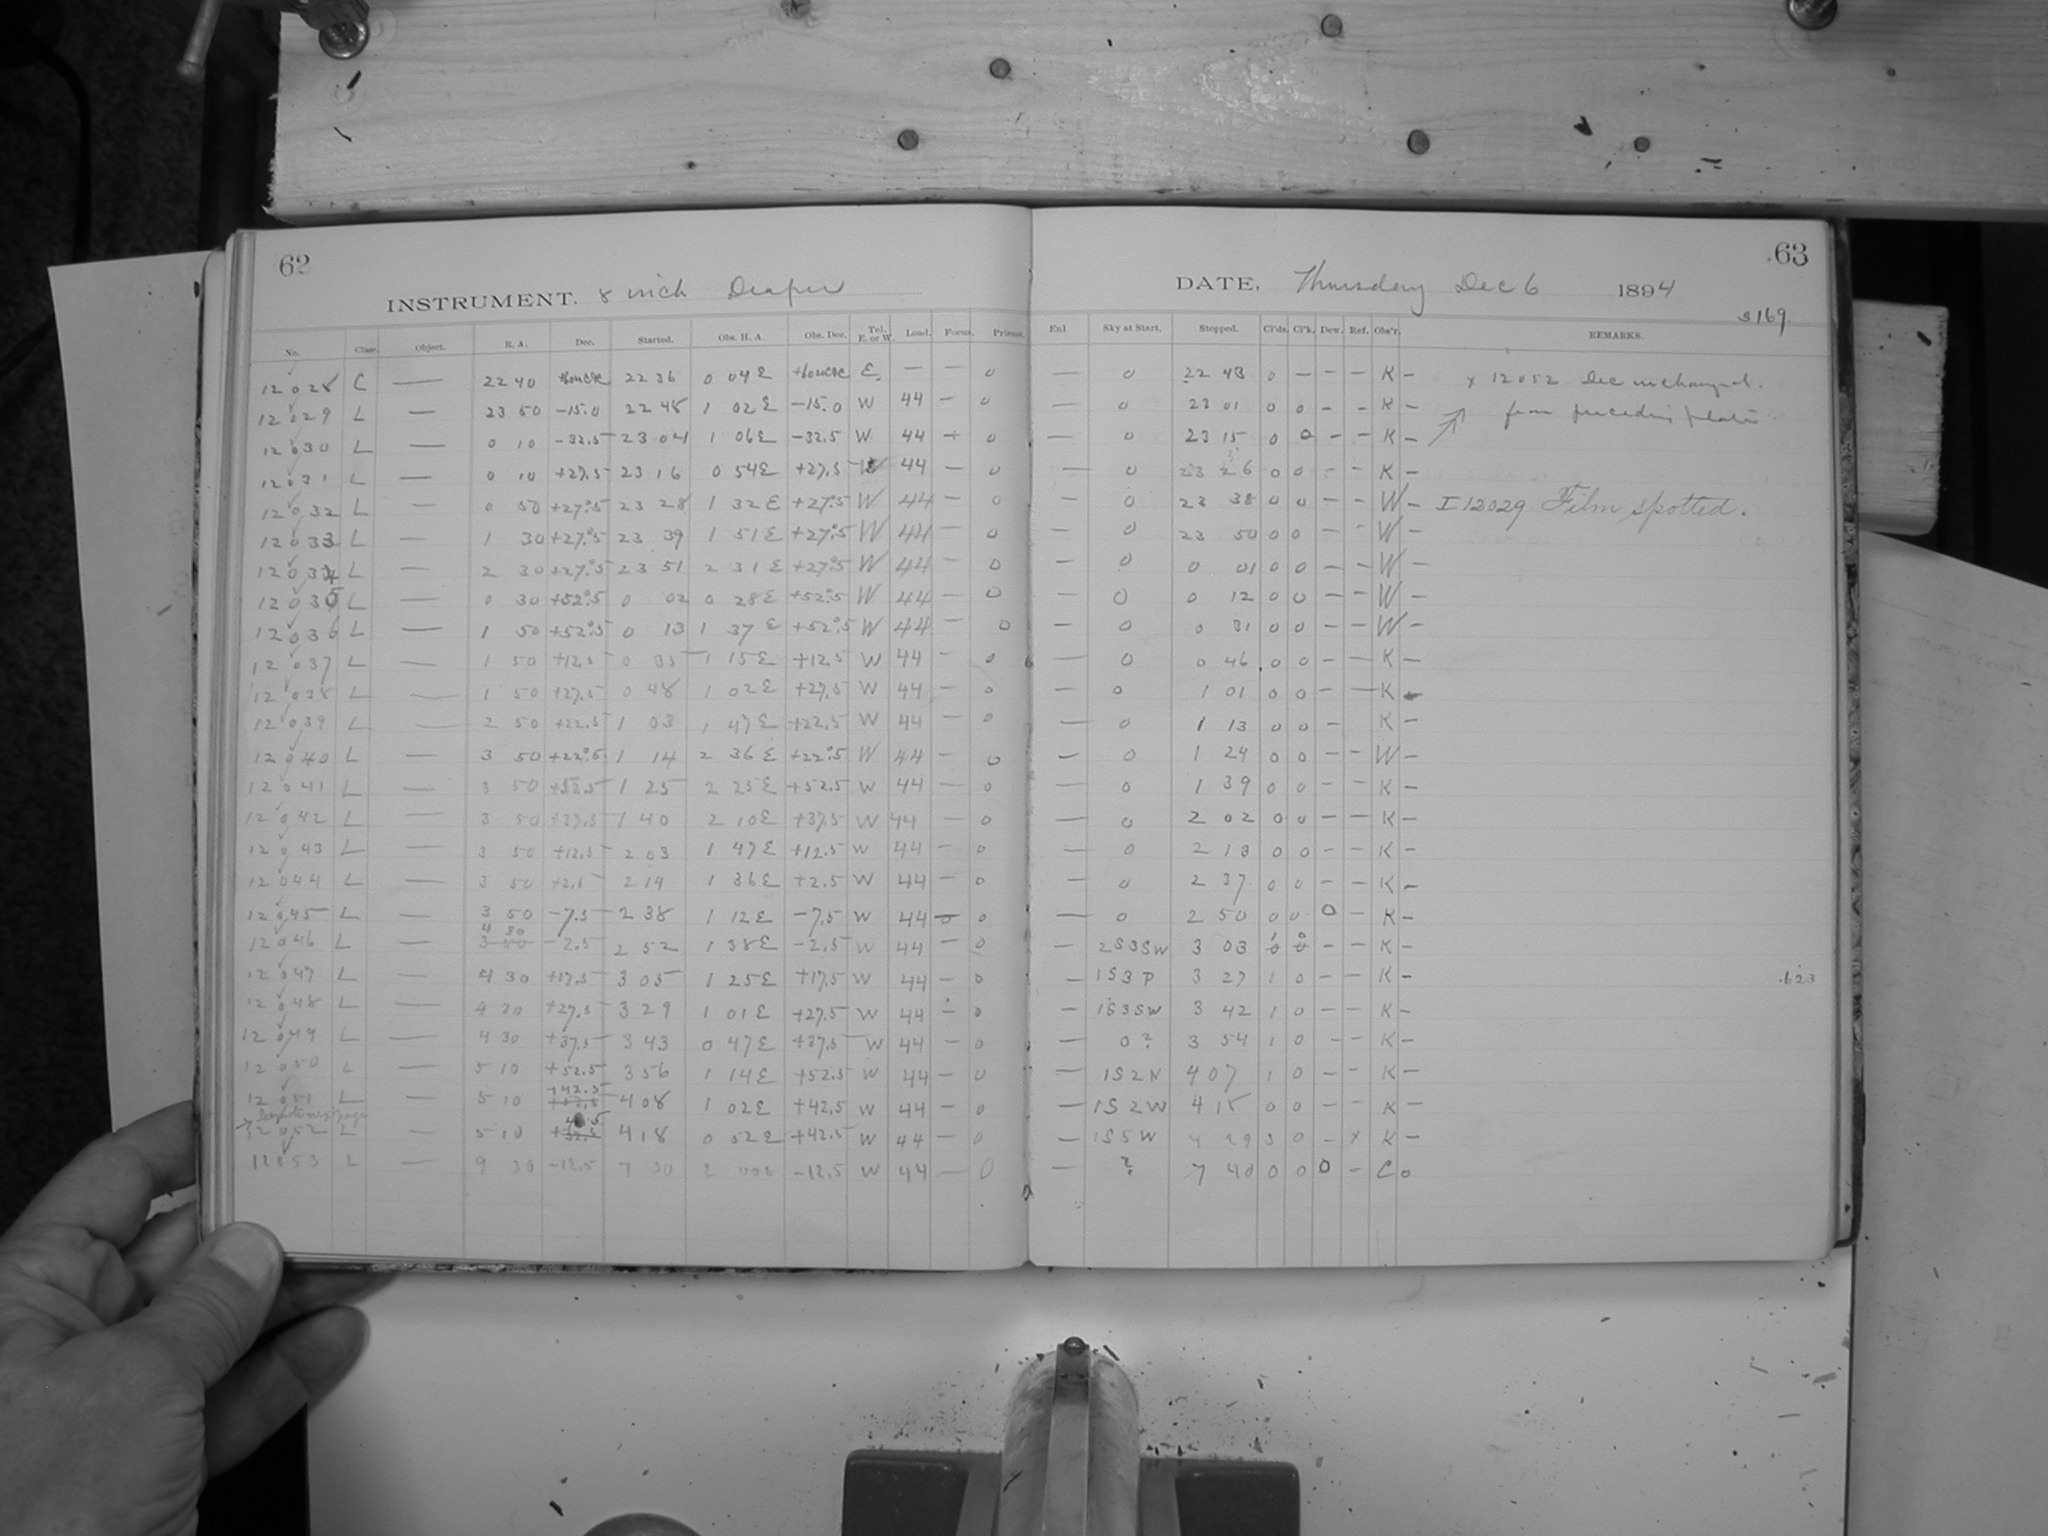 62
INSTRUMENT. 8 inch Draper
No. Class. Object. R. A. Dec. Started. Obs. H. A. Obs. Dec. Tel. E. or W. Load. Focus. Prisms.
12028 C — 22 40 22 36 0 04 E E. — — 0
12029 L — 23 50 -15.0 22 48 1 02 E -15.0 W 44 — 0
12030 L — 0 10 -32.5 23 04 1 06 E -32.5 W 44 — 0
12031 L — 0 10 +27.5 23 16 0 54 E +27.5 44 — 0
12032 L — 0 50 +27.5 23 28 1 32 E +27.5 W 44 — 0
12033 L — 1 30 +27.5 23 39 1 51 E +27.5 W 44 — 0
12034 L — 2 30 +27.5 23 51 2 31 E +27.5 W 44 — 0
12035 L — 0 30 +52.5 0 02 0 28 E +52.5 W 44 — 0
12036 L — 1 50 +52.5 0 13 1 37 E +52.5 W 44 — 0
12037 L — 1 50 +12.5 0 35 1 15 E +12.5 W 44 — 0
12038 L — 1 50 +27.5 0 48 1 02 E +27.5 W 44 — 0
12039 L — 2 50 +22.5 1 03 1 47 E +22.5 W 44 — 0
12040 L — 3 50 +22.5 1 14 2 36 E +22.5 W 44 — 0
12041 L — 3 50 +52.5 1 25 2 25 E +52.5 W 44 — 0
12042 L — 3 50 +37.5 1 40 2 10 E +37.5 W 44 — 0
12043 L — 3 50 +12.5 2 03 1 47 E +12.5 W 44 — 0
12044 L — 3 50 +2.5 2 14 1 36 E +2.5 W 44 — 0
12045 L — 3 50 -7.5 2 38 1 12 E -7.5 W 44 — 0
12046 L — 4 30 3 50 -2.5 2 52 1 38 E -2.5 W 44 — 0
12047 L — 4 30 +17.5 3 05 1 25 E +17.5 W 44 — 0
12048 L — 4 30 +27.5 3 29 1 01 E +27.5 W 44 — 0
12049 L — 4 30 +37.5 3 43 0 47 E +37.5 W 44 — 0
12050 L — 5 10 +52.5 3 56 1 14 E +52.5 W 44 — 0
12051 L — 5 10 +42.5 4 08 1 02 E +42.5 W 44 — 0
next page
12052 L — 5 10 4 18 0 52 E +42.5 W 44 — 0
12053 L — 9 30 -12.5 7 30 2 00 E -12.5 W 44 — 0
63
DATE, Thursday Dec 6 1894
3169
Enl Sky at Start. Stopped. Cl'ds. Cl'k. Dew. Ref. Obs'r. REMARKS.
— 0 22 43 0 — — — K — x 12052 Dec unchanged
— 0 23 01 0 0 — — K — from preceding plate
— 0 23 15 0 0 — — K —
— 0 23 26 0 0 — — K —
— 0 23 38 0 0 — — W — I 12029 Film spotted.
— 0 23 50 0 0 — — W —
— 0 0 01 0 0 — — W —
— 0 0 12 0 0 — — W —
— 0 0 31 0 0 — — W —
— 0 0 46 0 0 — — K —
— 0 1 01 0 0 — — K —
— 0 1 13 0 0 — K —
— 0 1 24 0 0 — — W —
— 0 1 39 0 0 — — K —
— 0 2 02 0 0 — — K —
— 0 2 13 0 0 — — K —
— 0 2 37 0 0 — — K —
— 0 2 50 0 0 0 — K —
— 2S3SW 3 03 — — K —
— 1S3P 3 27 1 0 — — K — .623
— 1S3SW 3 42 1 0 — — K —
— 0? 3 54 1 0 — — K —
— 1S2N 4 07 1 0 — — K —
— 1S2W 4 18 0 0 — — K —
— 1S5W 4 29 3 0 — x K —
— ? 7 40 0 0 0 — C 0